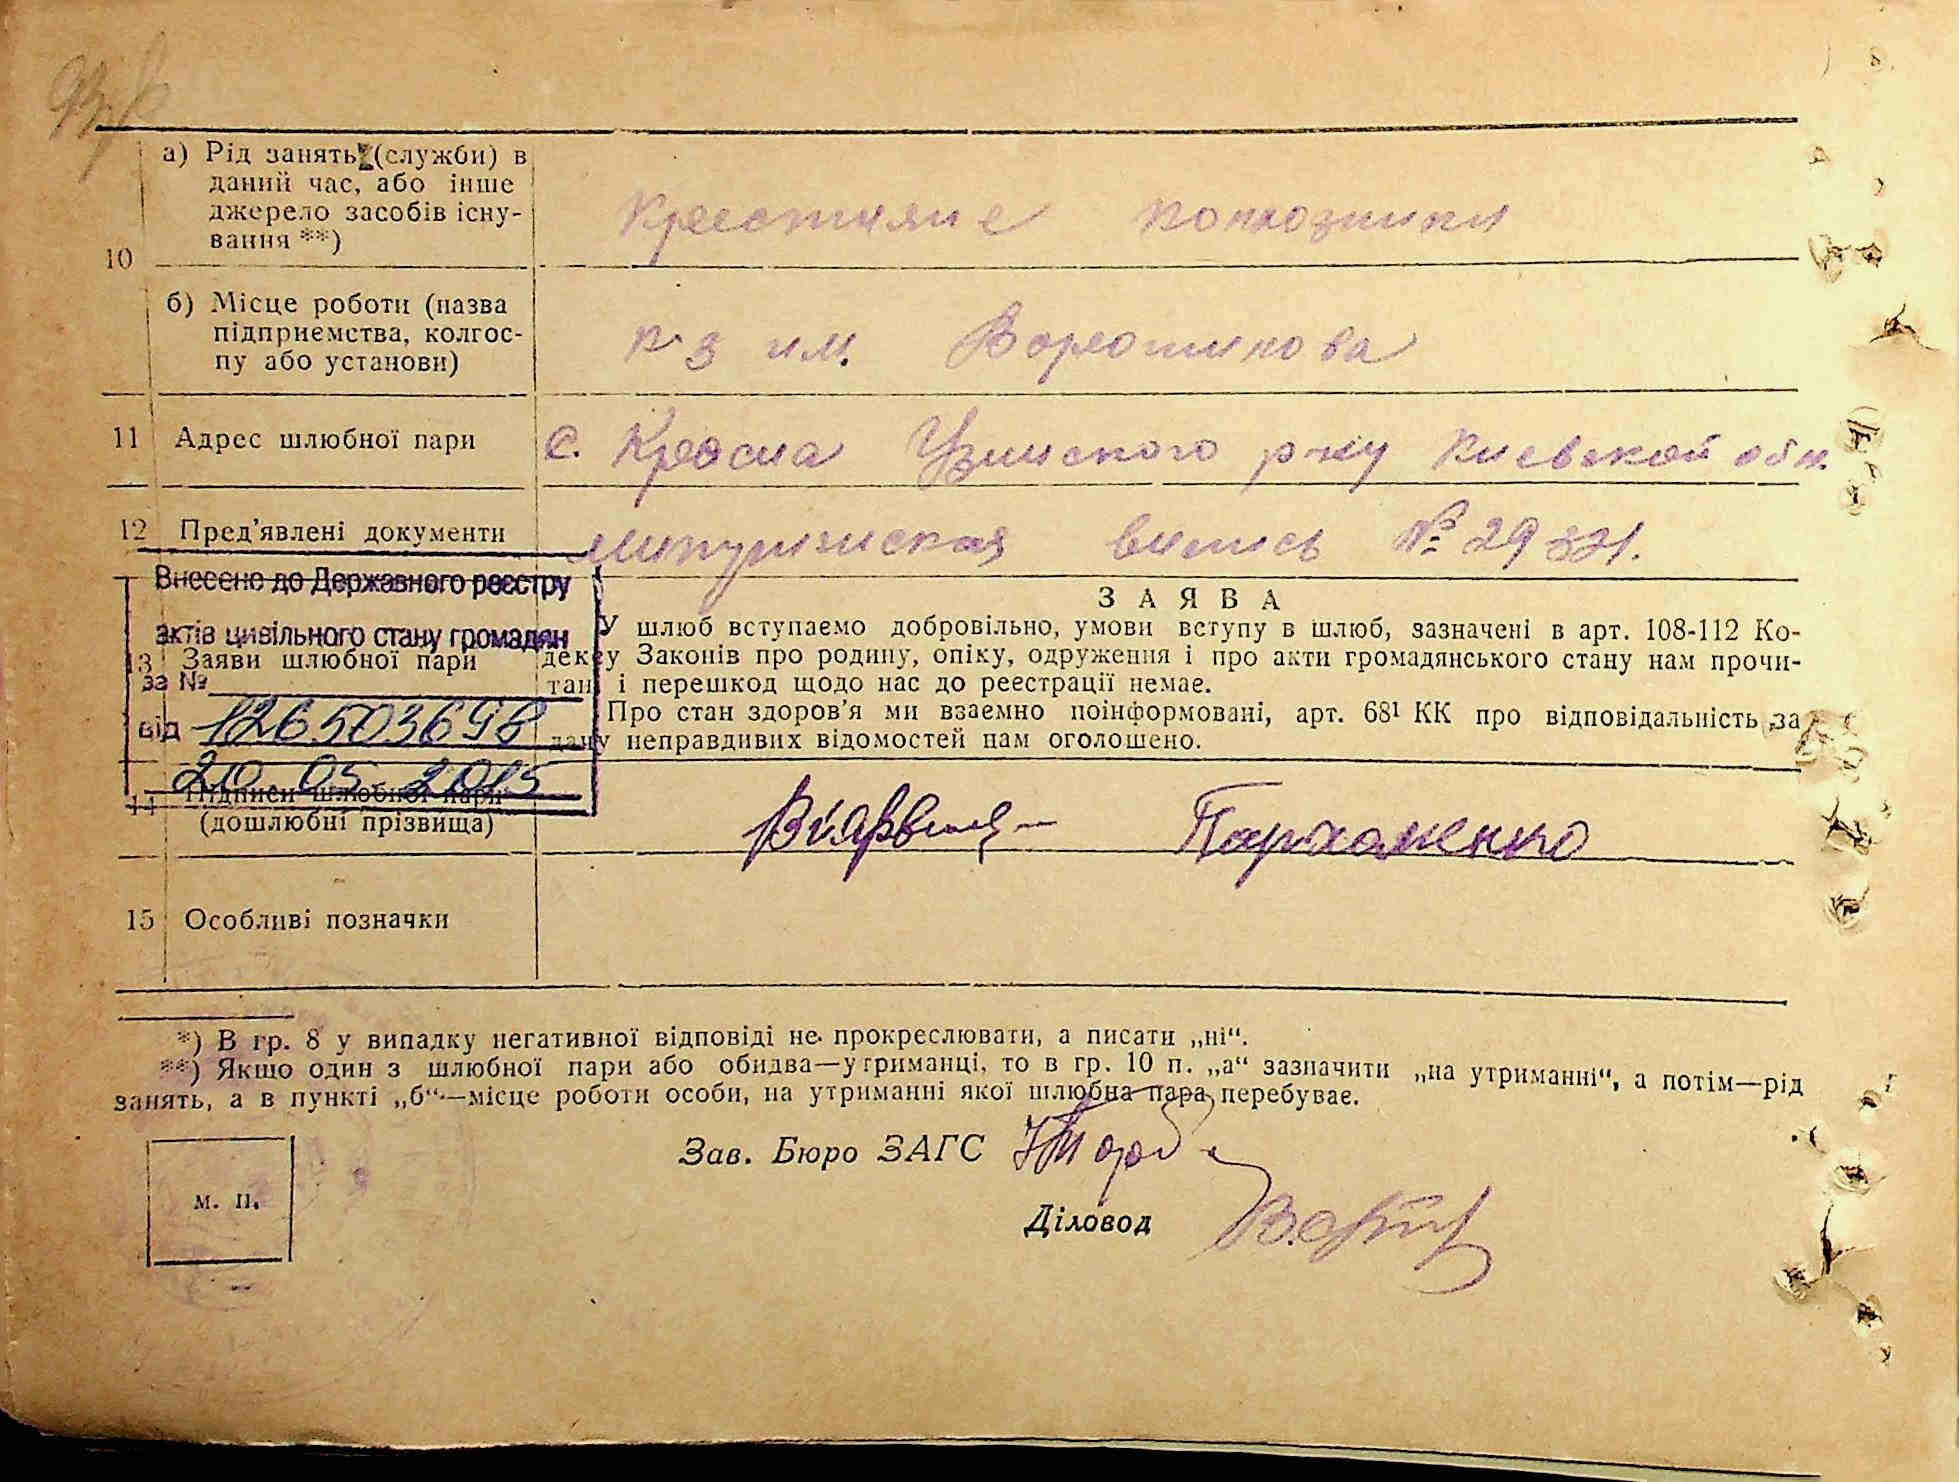 а) Рід занять (служби) в
даний час, або інше
джерело засобів існу-
вання **)
Крестяне колхозники
10
б) Місце роботи (назва
підприємства, колгос-
пу або установи)
к-з им. Ворошилова
11 Адрес шлюбної пари
с. Красна Узинского р-ну Киевской обл.
12 Пред'явлені документи
выпись № 29
Внесено до Державного реєстру
актів цивільного стану громадян
за №
126503698
від
20-05-2015
13 Заяви шлюбної пари
ЗАЯВА
У шлюб вступаємо добровільно, умови вступу в шлюб, зазначені в арт. 108-112 Ко-
дексу Законів про родину, опіку, одруження і про акти громадянського стану нам прочи-
тані і перешкод щодо нас до реєстрації немає.
Про стан здоров'я ми взаємно поінформовані, арт. 68¹ КК про відповідальність за
дану неправдивих відомостей нам оголошено.
14 Підписи шлюбної пари
(дошлюбні прізвища)
Пархоменко
15 Особливі позначки
*) В гр. 8 у випадку негативної відповіді не прокреслювати, а писати „ні“.
**) Якшо один з шлюбної пари або обидва—утриманці, то в гр. 10 п. „а“ зазначити „на утриманні“, а потім—рід
занять, а в пункті „б“—місце роботи особи, на утриманні якої шлюбна пара перебуває.
Зав. Бюро ЗАГС
м. п.
Діловод